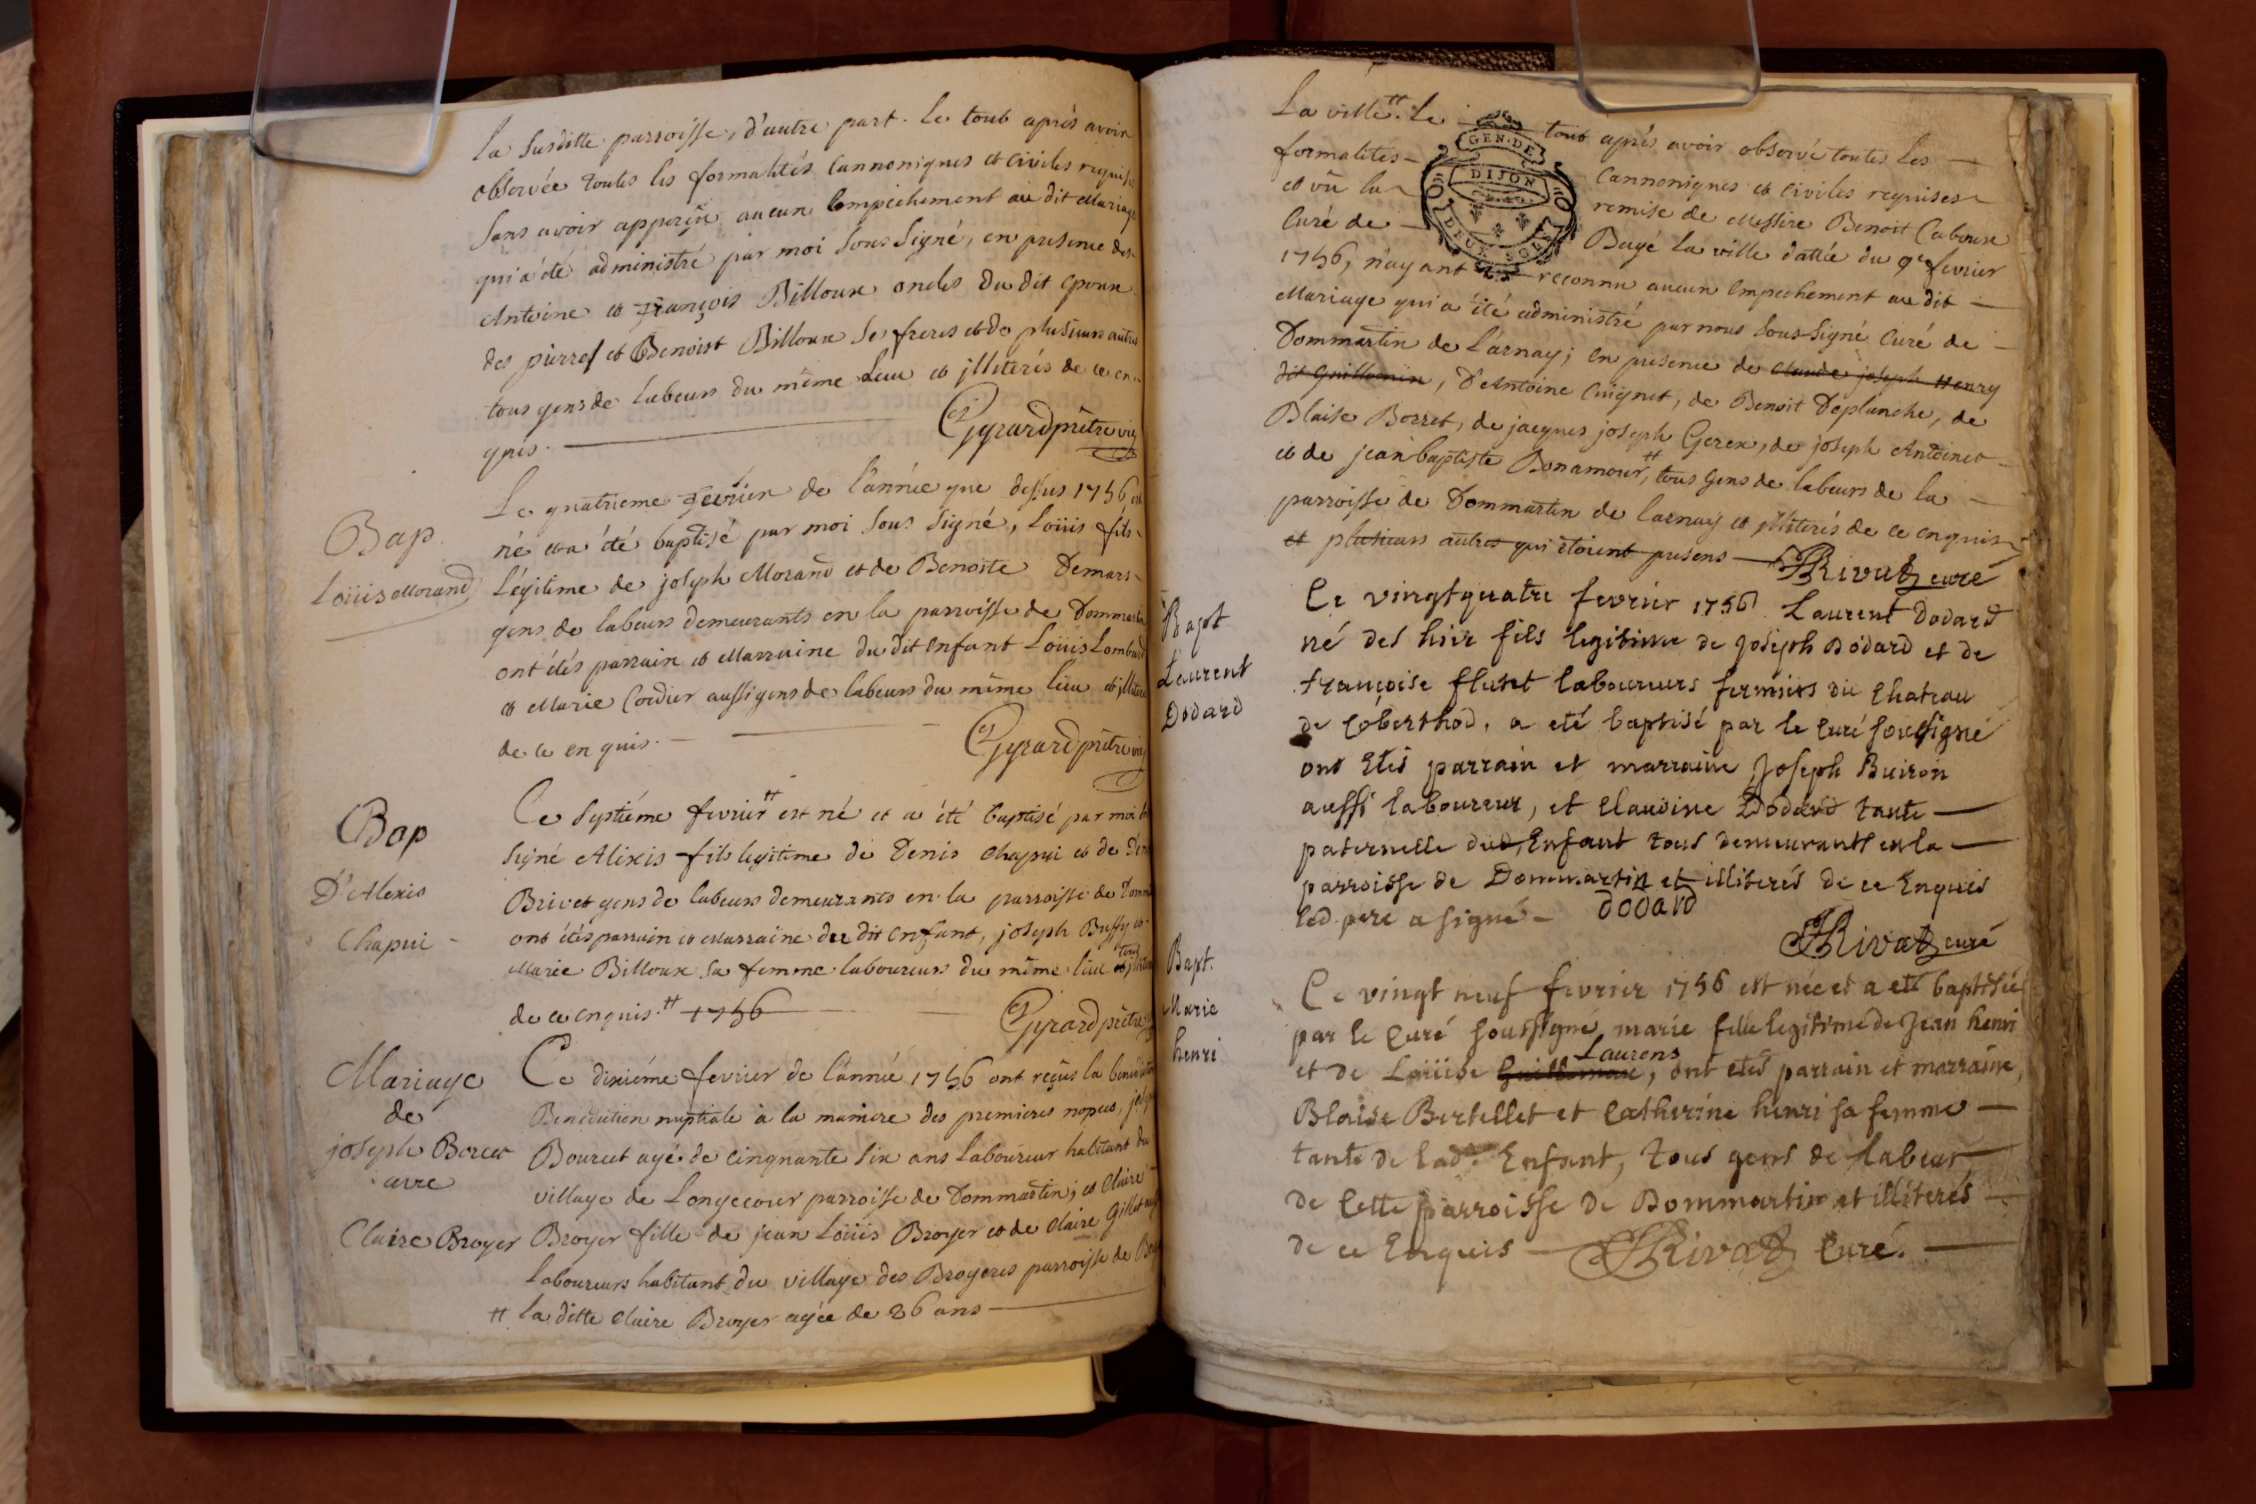 la susditte parroisse, d'autre part. Le tout après avoir
observée toutes les formalités cannoniques et civiles requises
sans avoir apperçû aucun Empechement au dit Mariage
qui a été administré par moi sous signé, en presence des
Antoine et françois Billoux oncles du dit Epoux
des pierres et Benoist Billoux ses freres et de plusieurs autres
tous gens de labeurs du même Lieu et jlliterés de ce en-
quis.
Gyrard prêtre vic
Bap.
Loüis Morand
Le quatrieme fevrier de l'année que dessus 1756 est
né et a été baptisé par moi sous signé, Loüis fils
légitime de joseph Morand et de Benoite Demars
gens de labeurs demeurants en la parroisse de Dommartin
ont étés parrain et Marraine du dit Enfant Loüis Lombard
et Marie Cordier aussi gens de labeurs du même lieu et jlliterés
de ce en quis.
Gyrard prêtre vic
Bap
D'Alexis
Chapui
Ce septiéme fevrier # est né et a été baptisé par moi
signé Alixis fils legitime de Denis Chapui et de
Brivet gens de labeurs demeurants en la parroisse de
ont étés parrain et Marraine du dit Enfant, joseph Buffy et
Marie Billoux sa femme laboureurs du même lieu tous
de ce enquis. # 1756
Gyrard prêtre
Mariage
de
joseph Boreet
avec
Claire Broyer
Ce dixiéme fevrier de l'année 1756 ont reçus la
Benediction nuptiale à la maniere des premieres nopces,
Boureet agé de cinquante six ans Laboureur habitant du
village de Longecour parroisse de Dommartin; et Claire
Broyer fille de jean Loüis Broyer et de Claire Gillet
Laboureurs habitant du village des Broyeres parroisse de
# la ditte Claire Broyer agée de 26 ans
La ville #. Le tout après avoir observé toutes les
GEN. DE
DIJON
DEUX SOLS
formalités cannoniques et civiles requises
et vû la remise de Messire Benoit Caboux
Curé de Bagé la ville dattée du 9e fevrier
1756, n'ayant reconnu aucun Empechement au dit
Mariage qui a été administré par nous sous-signé Curé de
Dommartin de Larnay; en presence de Claude joseph Henry
dit Guillemin, d'Antoine Cuignet, de Benoit Deplanche, de
Blaise Borret, de jacques joseph Gerex, de joseph Antoinet
et de jean baptiste Bonamour #, tous Gens de labeurs de la
parroisse de Dommartin de larnay et jlliterés de ce enquis
et plusieurs autres qui étoient presens
Rivat curé
Bapt
Laurent
Dodard
Ce vingt quatre fevrier 1756 Laurent Dodard
né des hier fils legitime de Joseph Dodard et de
françoise fluret laboureurs fermiers du Chateau
de Coberthod, a eté baptisé par le Curé soussigné
ont Etés parrain et marraine Joseph Buiron
aussi laboureur, et Claudine Dodard tante
paternelle dud. Enfant tous demeurants en la
parroisse de Dommartin et illiterés de ce Enquis
led. pere a signé
dodard
Rivat curé
Bapt.
Marie
henri
Ce vingt neuf fevrier 1756 est née et a eté baptisée
par le Curé soussigné marie fille legitime de Jean henri
et de Loüise Laurens, ont etés parrain et marraine,
Blaise Bertellet et Catherine henri sa femme
tante de lad. Enfant, tous gens de labeur
de cette parroisse de Dommartin et illiterés
de ce Enquis
Rivat Curé.